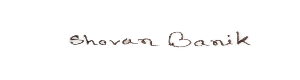 Shovan Banik